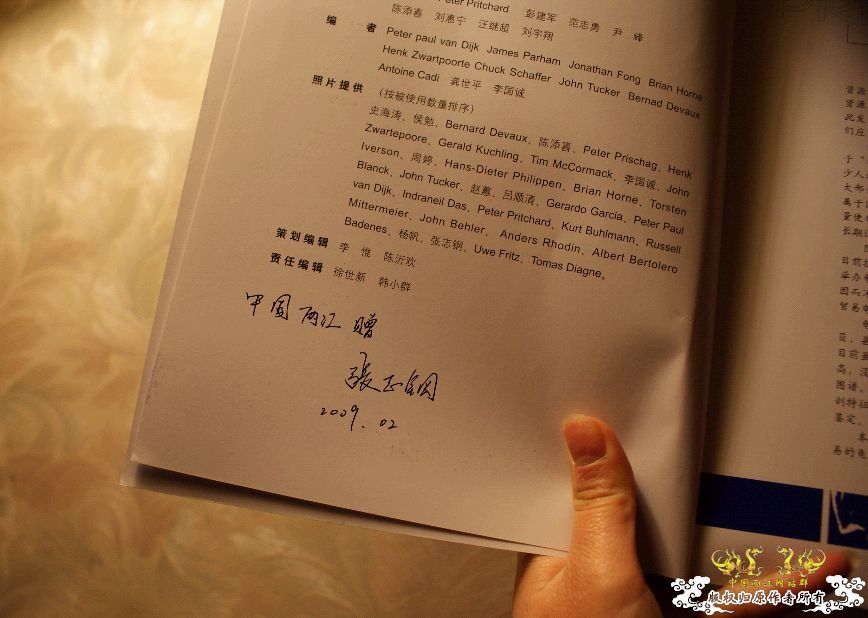 Peter Pritchard 彭建军 范志勇 尹峰
陈添喜 刘惠宁 汪继超 刘宇翔
编者
Peter paul van Dijk James Parham Jonathan Fong Brian Horne
Henk Zwartpoorte Chuck Schaffer John Tucker Bernad Devaux
Antoine Cadi 龚世平 李国诚
照片提供
(按被使用数量排序)
史海涛、侯勉、Bernard Devaux、陈添喜、Peter Prischag、Henk
Zwartepoore、Gerald Kuchling、Tim McCormack、李国诚、John
Iverson、周婷、Hans-Dieter Philippen、Brian Horne、Torsten
Blanck、John Tucker、赵蕙、吕顺清、Gerardo García、Peter Paul
van Dijk、Indraneil Das、Peter Pritchard、Kurt Buhlmann、Russell
Mittermeier、John Behler、Anders Rhodin、Albert Bertolero
Badenes、杨帆、张志钢、Uwe Fritz、Tomas Diagne。
策划编辑 李惟 陈沂欢
责任编辑 徐世新 韩小群
中国两江 赠
張志钢
2009.02
资源
资源
此发
们应
于
少人
大部
属于
量使
长期
目前
举办
因而
贸易
员，
目前
高，
图谱。
剖特征
鉴定。
本
易的龟
中国两江网站群
版权归原作者所有